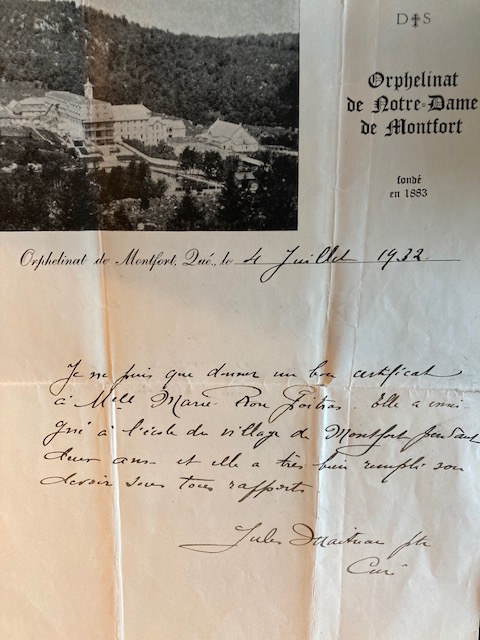 D S
Orphelinat
de Notre-Dame
de Montfort
fondé
en 1883
Orphelinat de Montfort, Qué., le 4 Juillet 1932
Je ne puis que donner un bon certificat
à Melle Marie-Rose Poitras. Elle a ensei
gné à l'école du village de Montfort pendant
deux ans et elle a très bien rempli son
devoir sous tous rapports.
Jules ptr
Curé